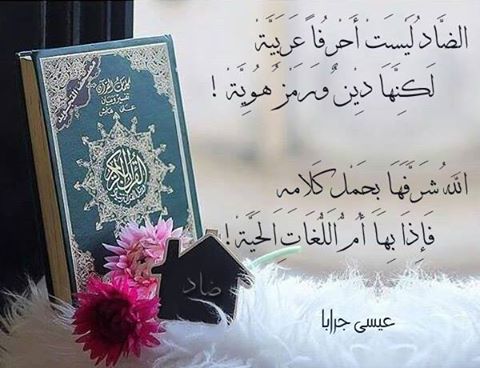 الضَّادُ لَيسَتْ أَحْرُفاً عَرَبِيَّةْ
لَكِنَّهَا دِيْنٌ وَرَمْزُ هُوِيَّةْ !
اللهُ شَرَّفَهَا بِحَمْلِ كَلَامِهِ
فَإِذَا بِهَا أُمُّ اللُّغَاتِ الحَيَّةْ !
عيسى جرابا
القرآن الكريم
ضاد